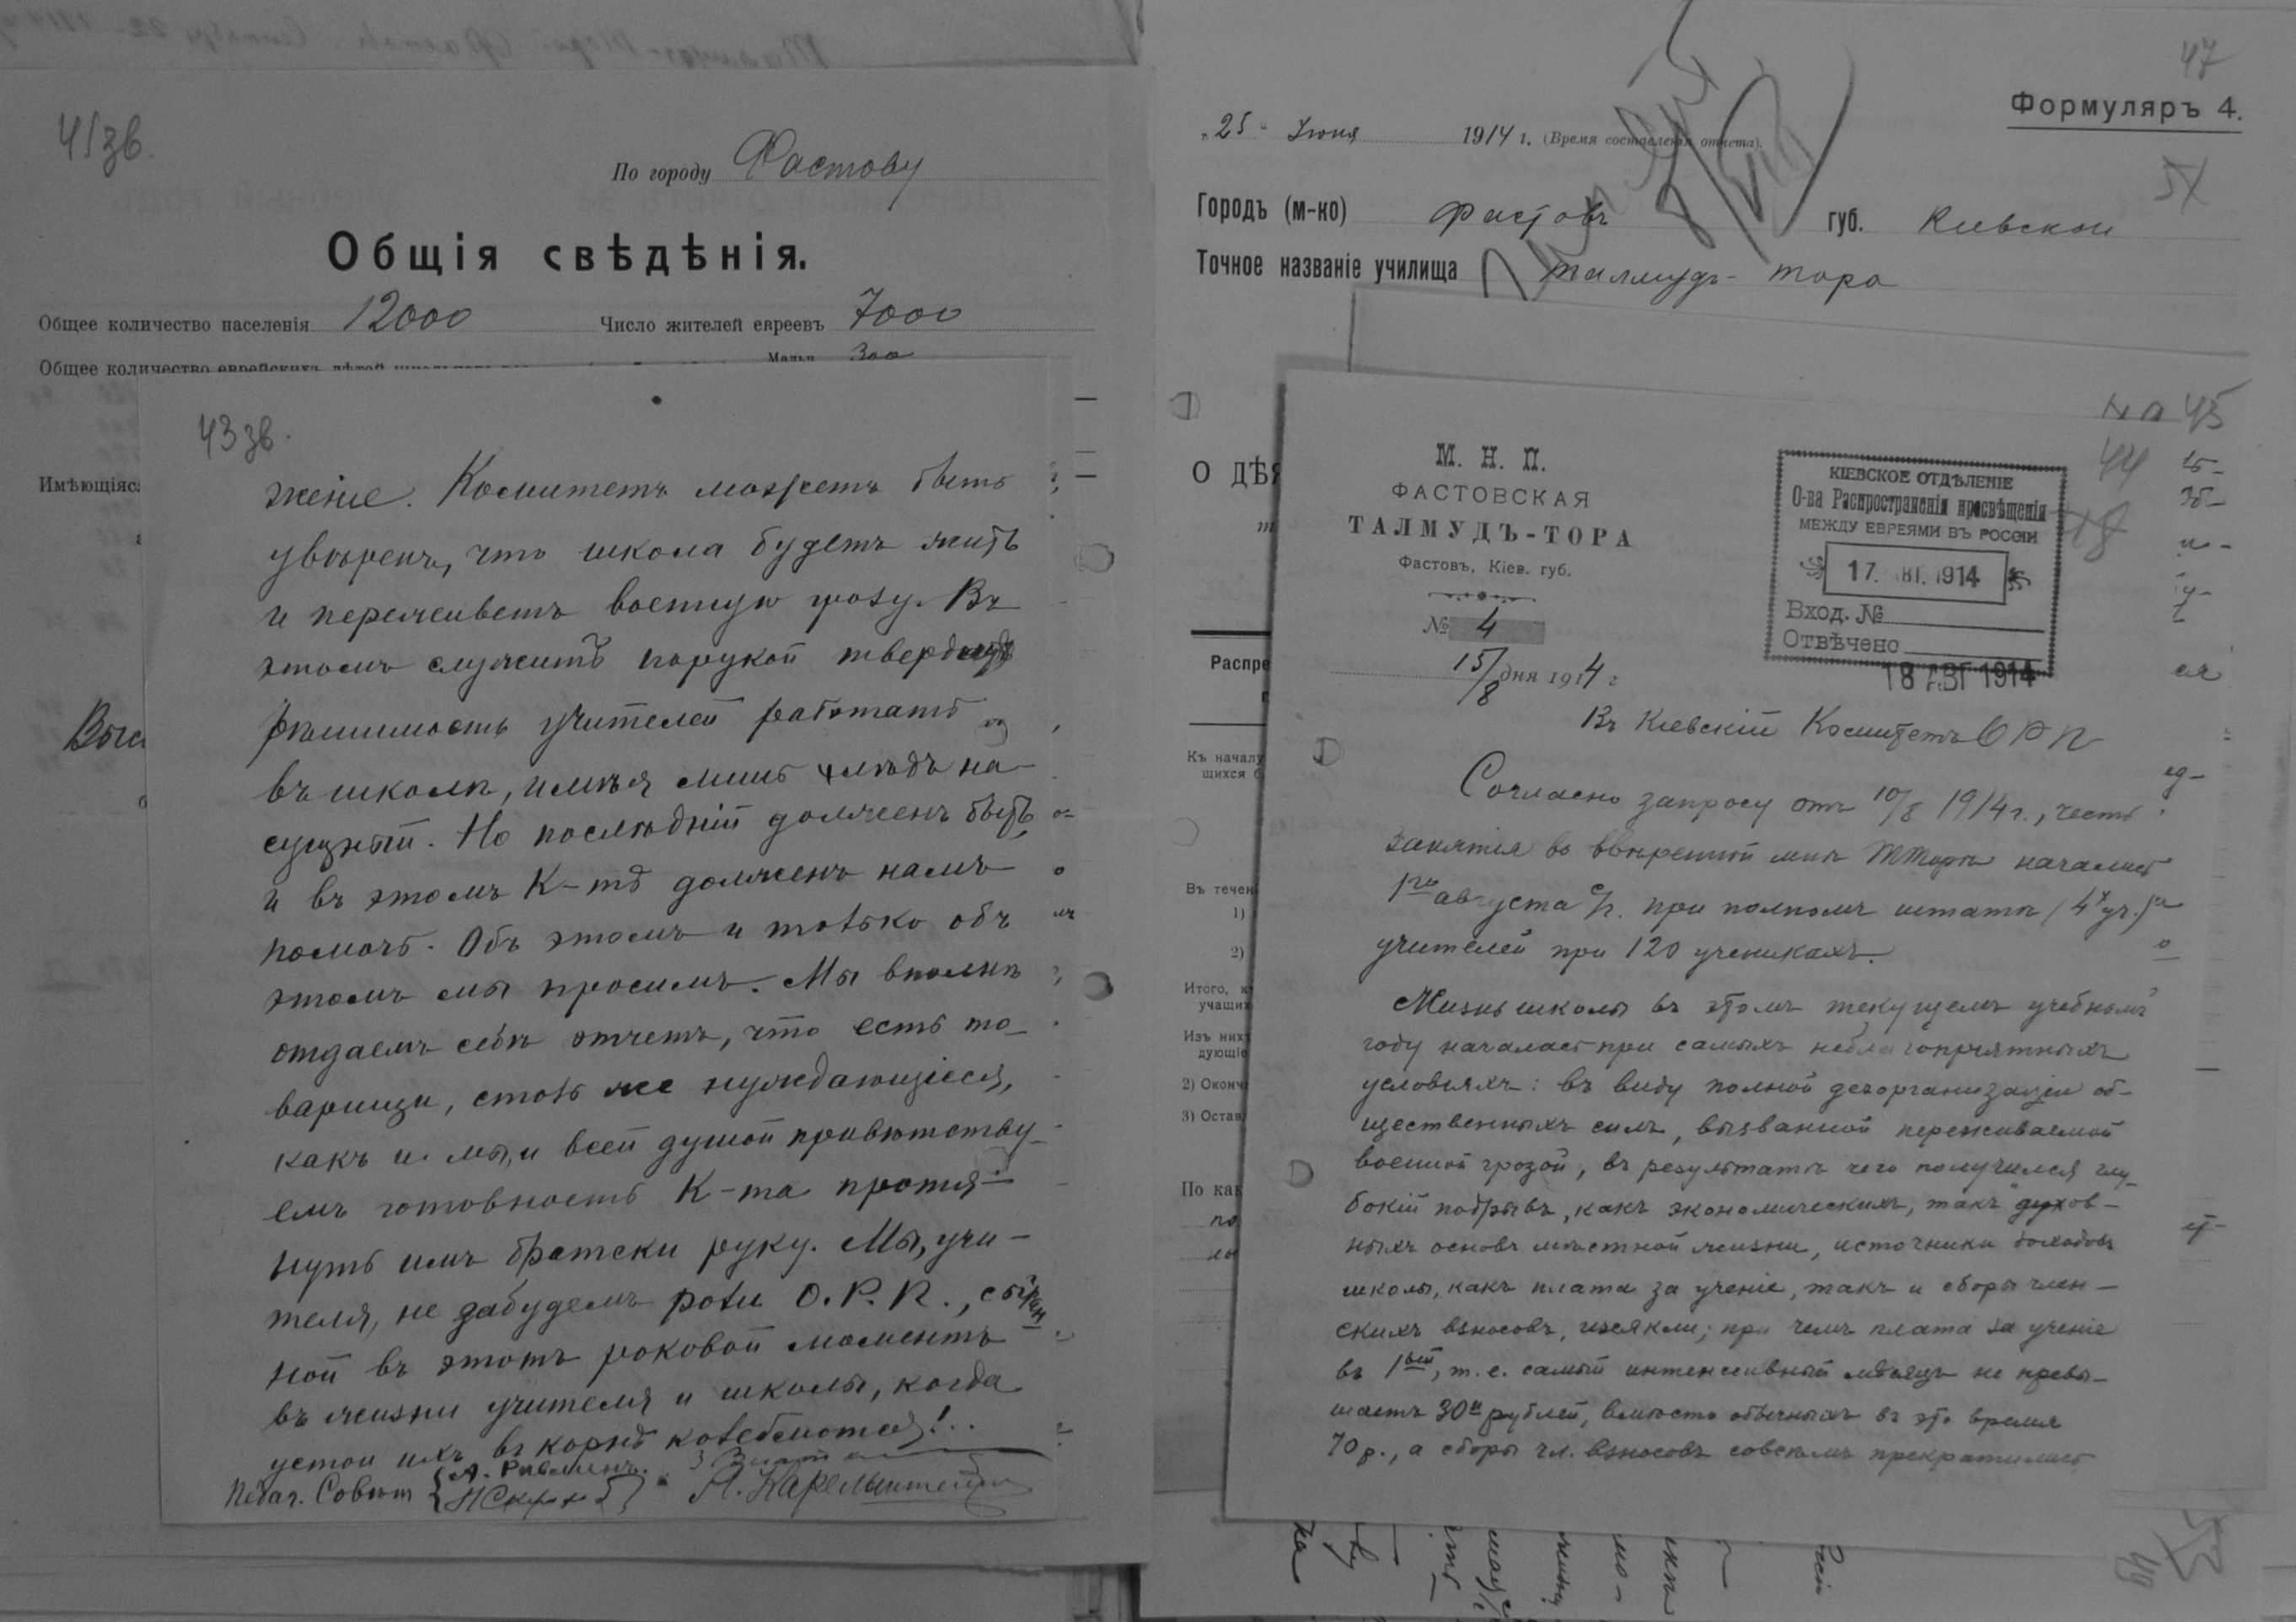 41зв.
По городу Фастову
Общія свѣдѣнія.
Общее количество населенія 12000 Число жителей евреевъ 7000
Общее количество еврейскихъ дѣтей
Мальч. 300
Имѣющіяс
43зв.
женіе. Комитетъ можетъ быть
увѣренъ, что школа будетъ жить
и переживетъ военную грозу. Въ
этомъ служитъ порукой твердая
рѣшимость учителей работать
въ школѣ, имѣя лишь хлѣбъ на-
сущный. Но послѣдній долженъ быть,
и въ этомъ К-тъ долженъ намъ
помочь. Объ этомъ и только объ
этомъ мы просимъ. Мы вполнѣ
отдаемъ себѣ отчетъ, что есть то-
варищи, столь же нуждающіеся,
какъ и мы, и всей душой привѣтству-
емъ готовность К-та протя-
нуть имъ братски руку. Мы, учи-
теля, не забудемъ роли О.Р.П., сыгран-
ной въ этотъ роковой моментъ
въ жизни учителя и школы, когда
устои ихъ въ корнѣ колеблются!..
Педаг. Совѣт
47
Формуляръ 4.
„25“ Іюня 1914 г. (Время составленія отчета).
Городъ (м-ко) Фастовъ губ. Кіевской
Точное названіе училища Талмудъ-Тора
О ДѢЯ
Распре
Къ началу
щихся
Въ течен
1)
2)
Итого, к
учащих
Изъ них
дующіе
2) Оконч
3) Остав
По как
45
44
М. Н. П.
ФАСТОВСКАЯ
ТАЛМУДЪ-ТОРА
Фастовъ, Кіев. губ.
№ 4
15/8 дня 1914 г
КІЕВСКОЕ ОТДѢЛЕНІЕ
О-ва Распространенія просвѣщенія
МЕЖДУ ЕВРЕЯМИ ВЪ РОССІИ
17. АВГ. 1914
Вход. №
Отвѣчено
18 АВГ 1914
Въ Кіевскій Комитетъ ОРП
Согласно запросу отъ 10/8 1914 г., честь
занятія во ввѣренной мнѣ ТТорѣ начались
1го августа с/г. при полномъ штатѣ (4х уч.)
учителей при 120 ученикахъ.
Жизнь школы въ этомъ текущемъ учебномъ
году началась при самыхъ неблагопріятныхъ
условіяхъ: въ виду полной дезорганизаціи об-
щественныхъ силъ, вызванной переживаемой
военной грозой, въ результатѣ чего получился глу-
бокій подрывъ, какъ экономическихъ, такъ духов-
ныхъ основъ мѣстной жизни, источники доходовъ
школы, какъ плата за ученіе, такъ и сборы член-
скихъ взносовъ, изсякли; при чемъ плата за ученіе
въ 1ый, т.е. самый интенсивный мѣсяцъ не превы-
шаетъ 30и рублей, вмѣсто обычныхъ въ это время
70 р., а сборы чл. взносовъ совсѣмъ прекратились